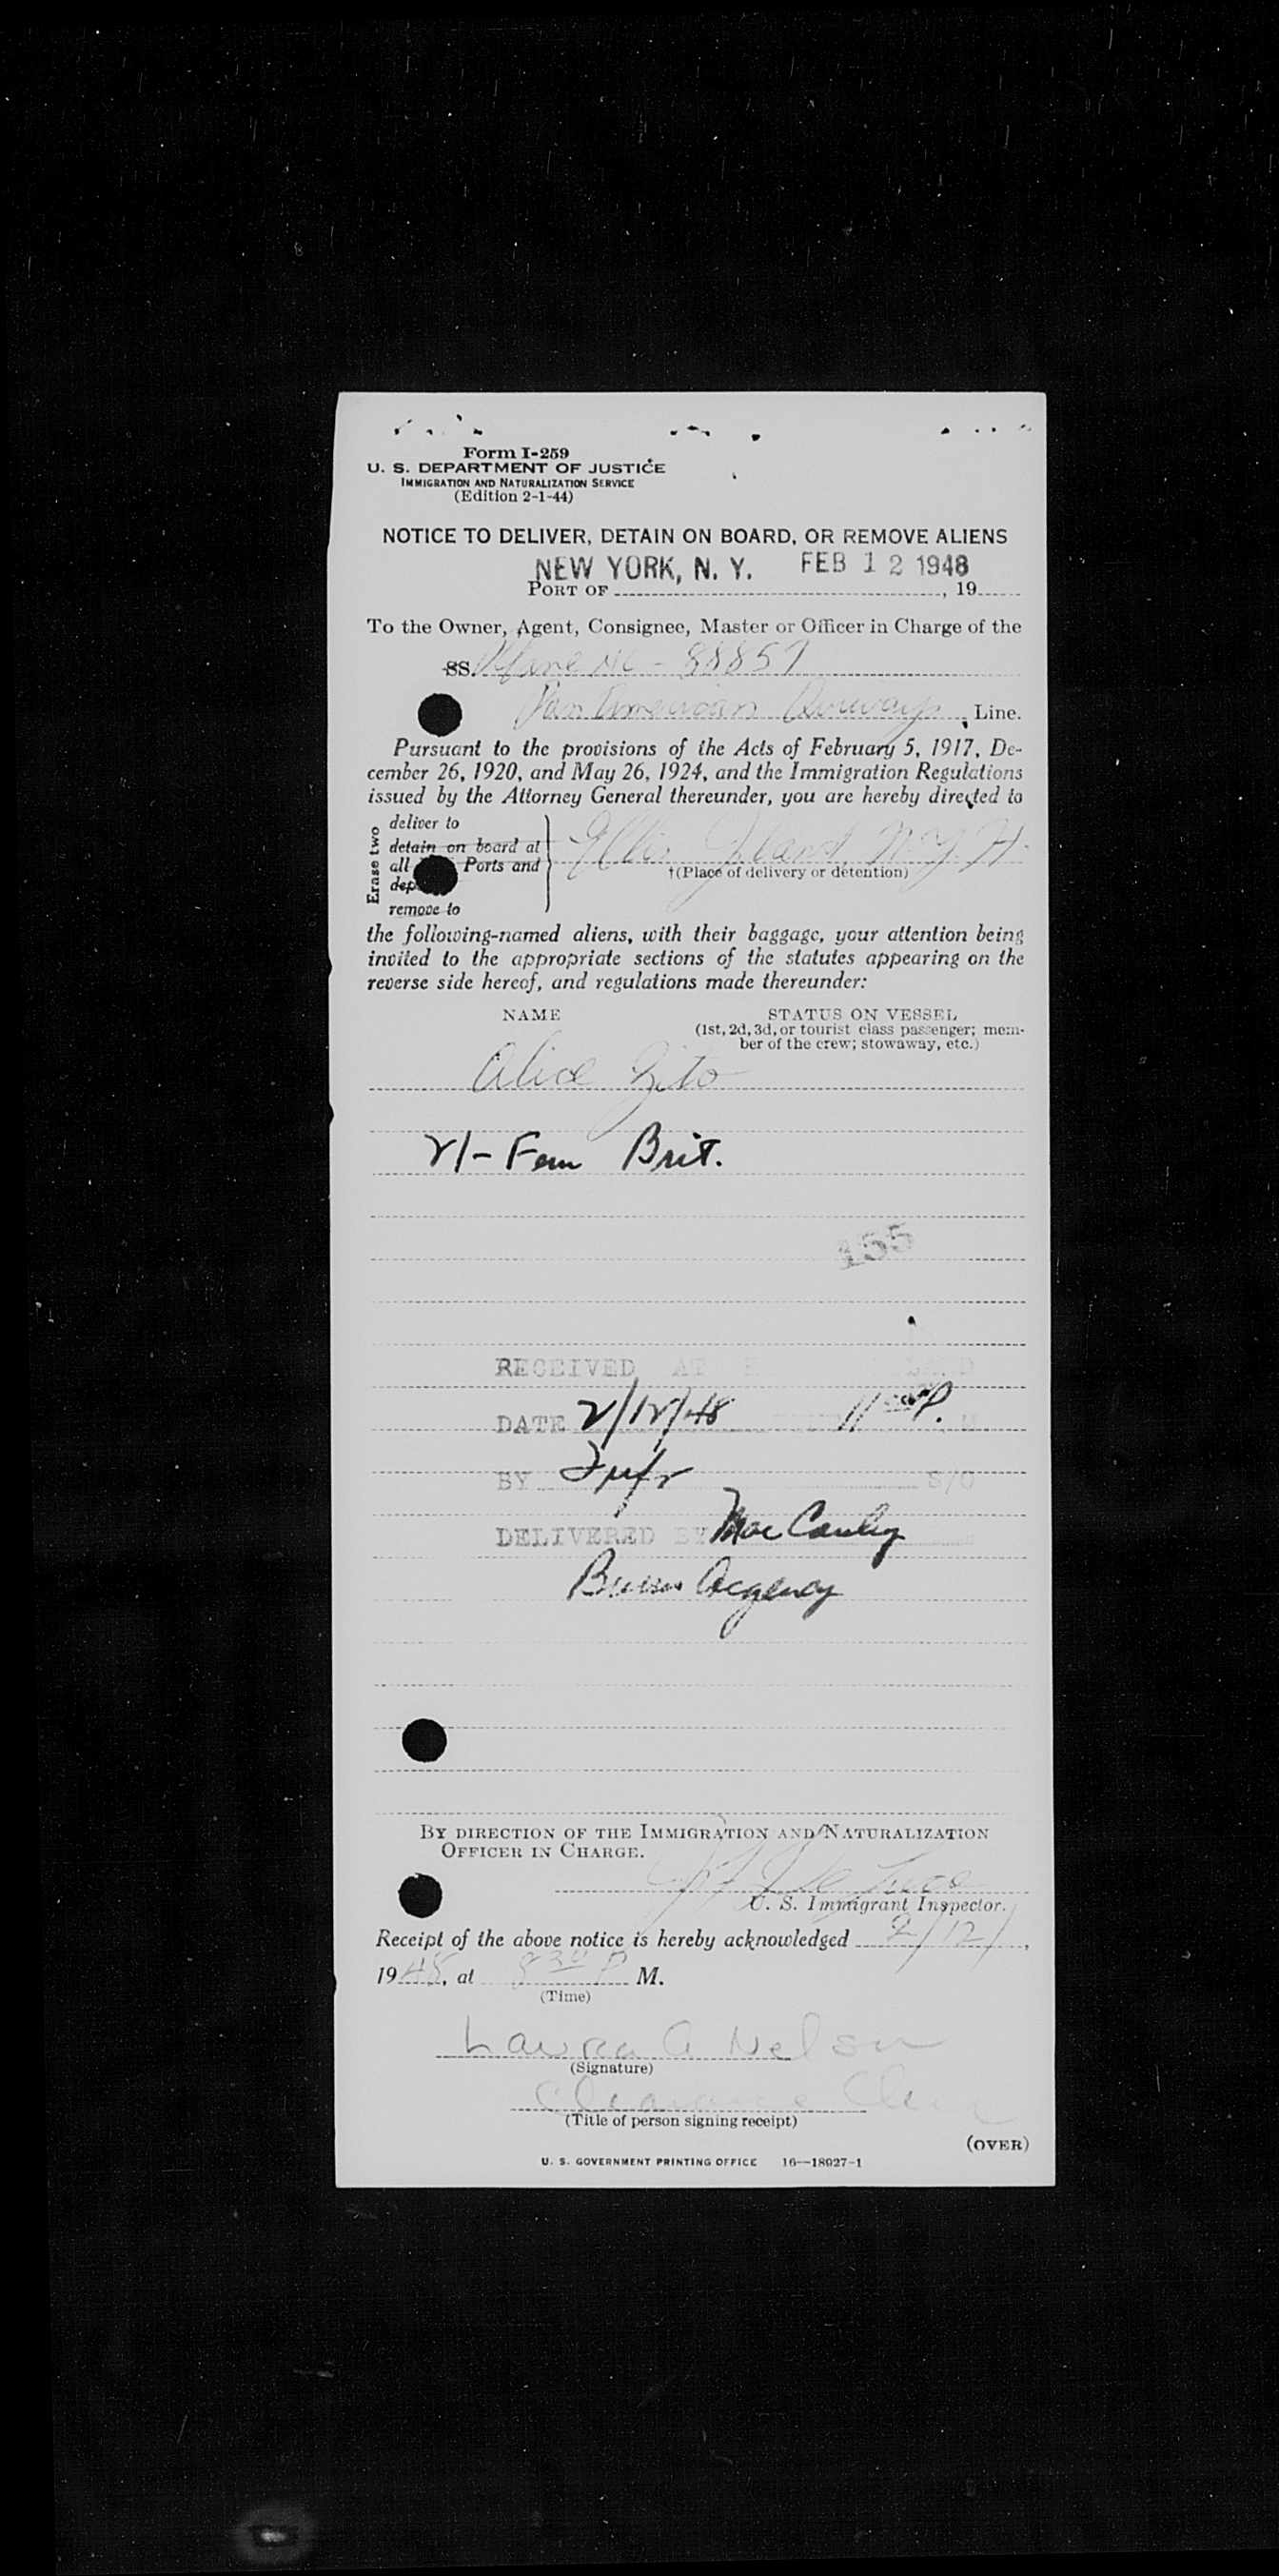 Form I-259
U. S. DEPARTMENT OF JUSTICE
IMMIGRATION AND NATURALIZATION SERVICE
(Edition 2-1-44)
NOTICE TO DELIVER, DETAIN ON BOARD, OR REMOVE ALIENS
NEW YORK, N. Y. FEB 12 1948
PORT OF , 19
To the Owner, Agent, Consignee, Master or Officer in Charge of the
SS. Plane NC - 88857
Pan American Airways, Line.
Pursuant to the provisions of the Acts of February 5, 1917, De-
cember 26, 1920, and May 26, 1924, and the Immigration Regulations
issued by the Attorney General thereunder, you are hereby directed to
Erase two
deliver to
detain on board at
all Ports and
dep
remove to
Ellis Island, N.Y.H.
†(Place of delivery or detention)
the following-named aliens, with their baggage, your attention being
invited to the appropriate sections of the statutes appearing on the
reverse side hereof, and regulations made thereunder:
NAME STATUS ON VESSEL
(1st, 2d, 3d, or tourist class passenger; mem-
ber of the crew; stowaway, etc.)
Alice Zito
21 - Fem Brit.
155
RECEIVED AT
DATE 2/12/48 11 P. M
BY S/O
DELIVERED BY
Agency
BY DIRECTION OF THE IMMIGRATION AND NATURALIZATION
OFFICER IN CHARGE.
U. S. Immigrant Inspector.
Receipt of the above notice is hereby acknowledged 2/12/,
1948, at 8 30 P M.
(Time)
A Nelson
(Signature)
Clearance
(Title of person signing receipt)
(OVER)
U. S. GOVERNMENT PRINTING OFFICE 16—18027-1